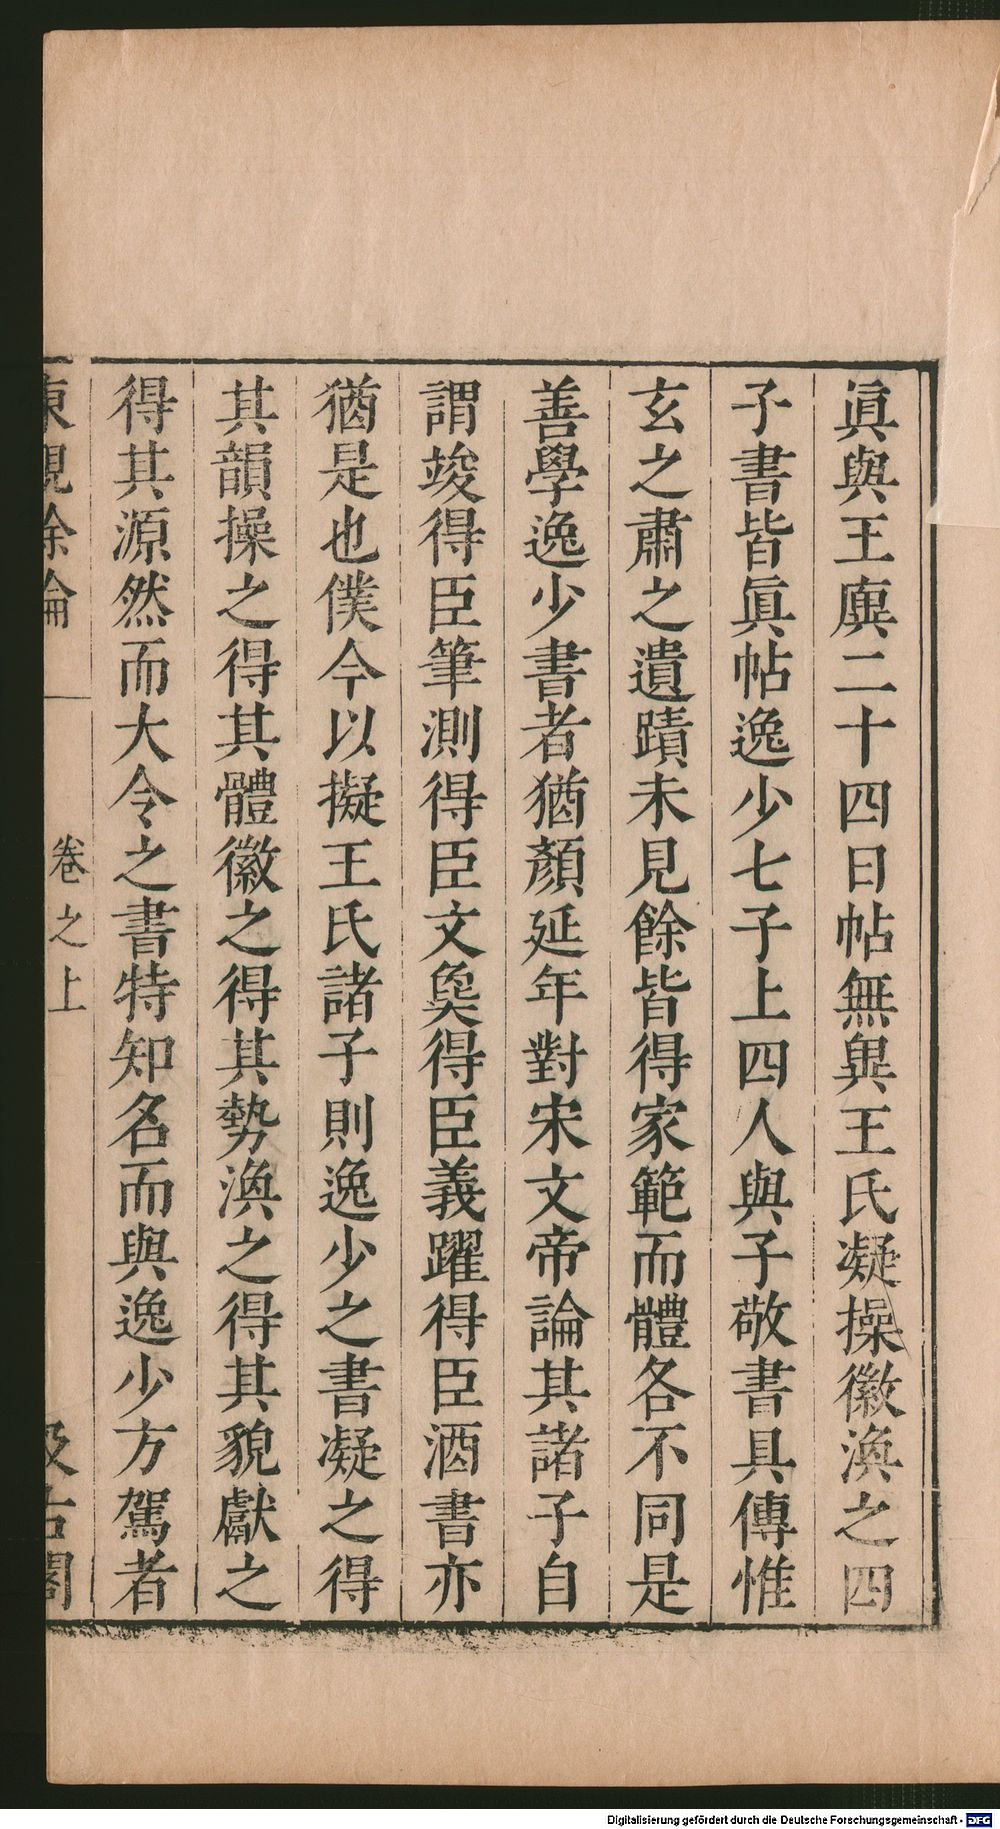 眞與王廙二十四日帖無異王氏凝操徽渙之四
子書皆眞帖逸少七子上四人與子敬書具傳惟
玄之肅之遺蹟未見餘皆得家範而體各不同是
善學逸少書者猶顏延年對宋文帝論其諸子自
謂竣得臣筆測得臣文㚟得臣義躍得臣酒書亦
猶是也僕今以擬王氏諸子則逸少之書凝之得
其韻操之得其體徽之得其勢渙之得其貌獻之
得其源然而大令之書特知名而與逸少方駕者
東觀余論
卷之上
汲古閣
Digitalisierung gefördert durch die Deutsche Forschungsgemeinschaft - DFG